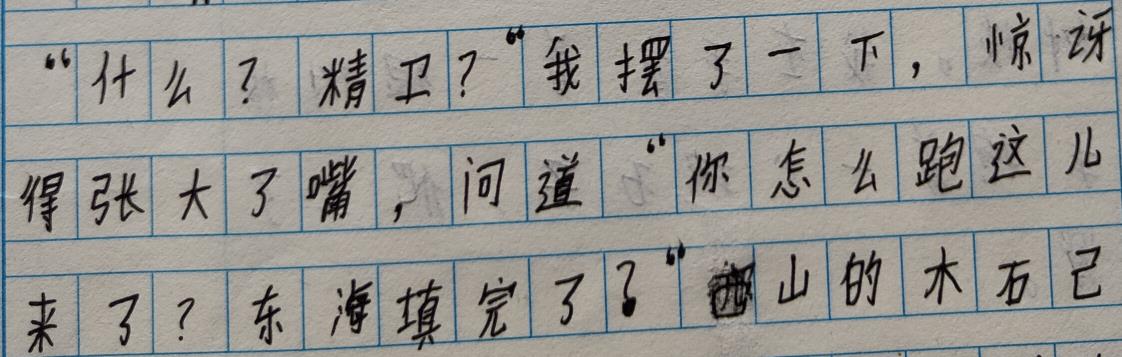 “什么？精卫？“我摆了一下，惊讶
得张大了嘴，问道“你怎么跑这儿
来了？东海填完了？“西山的木石己